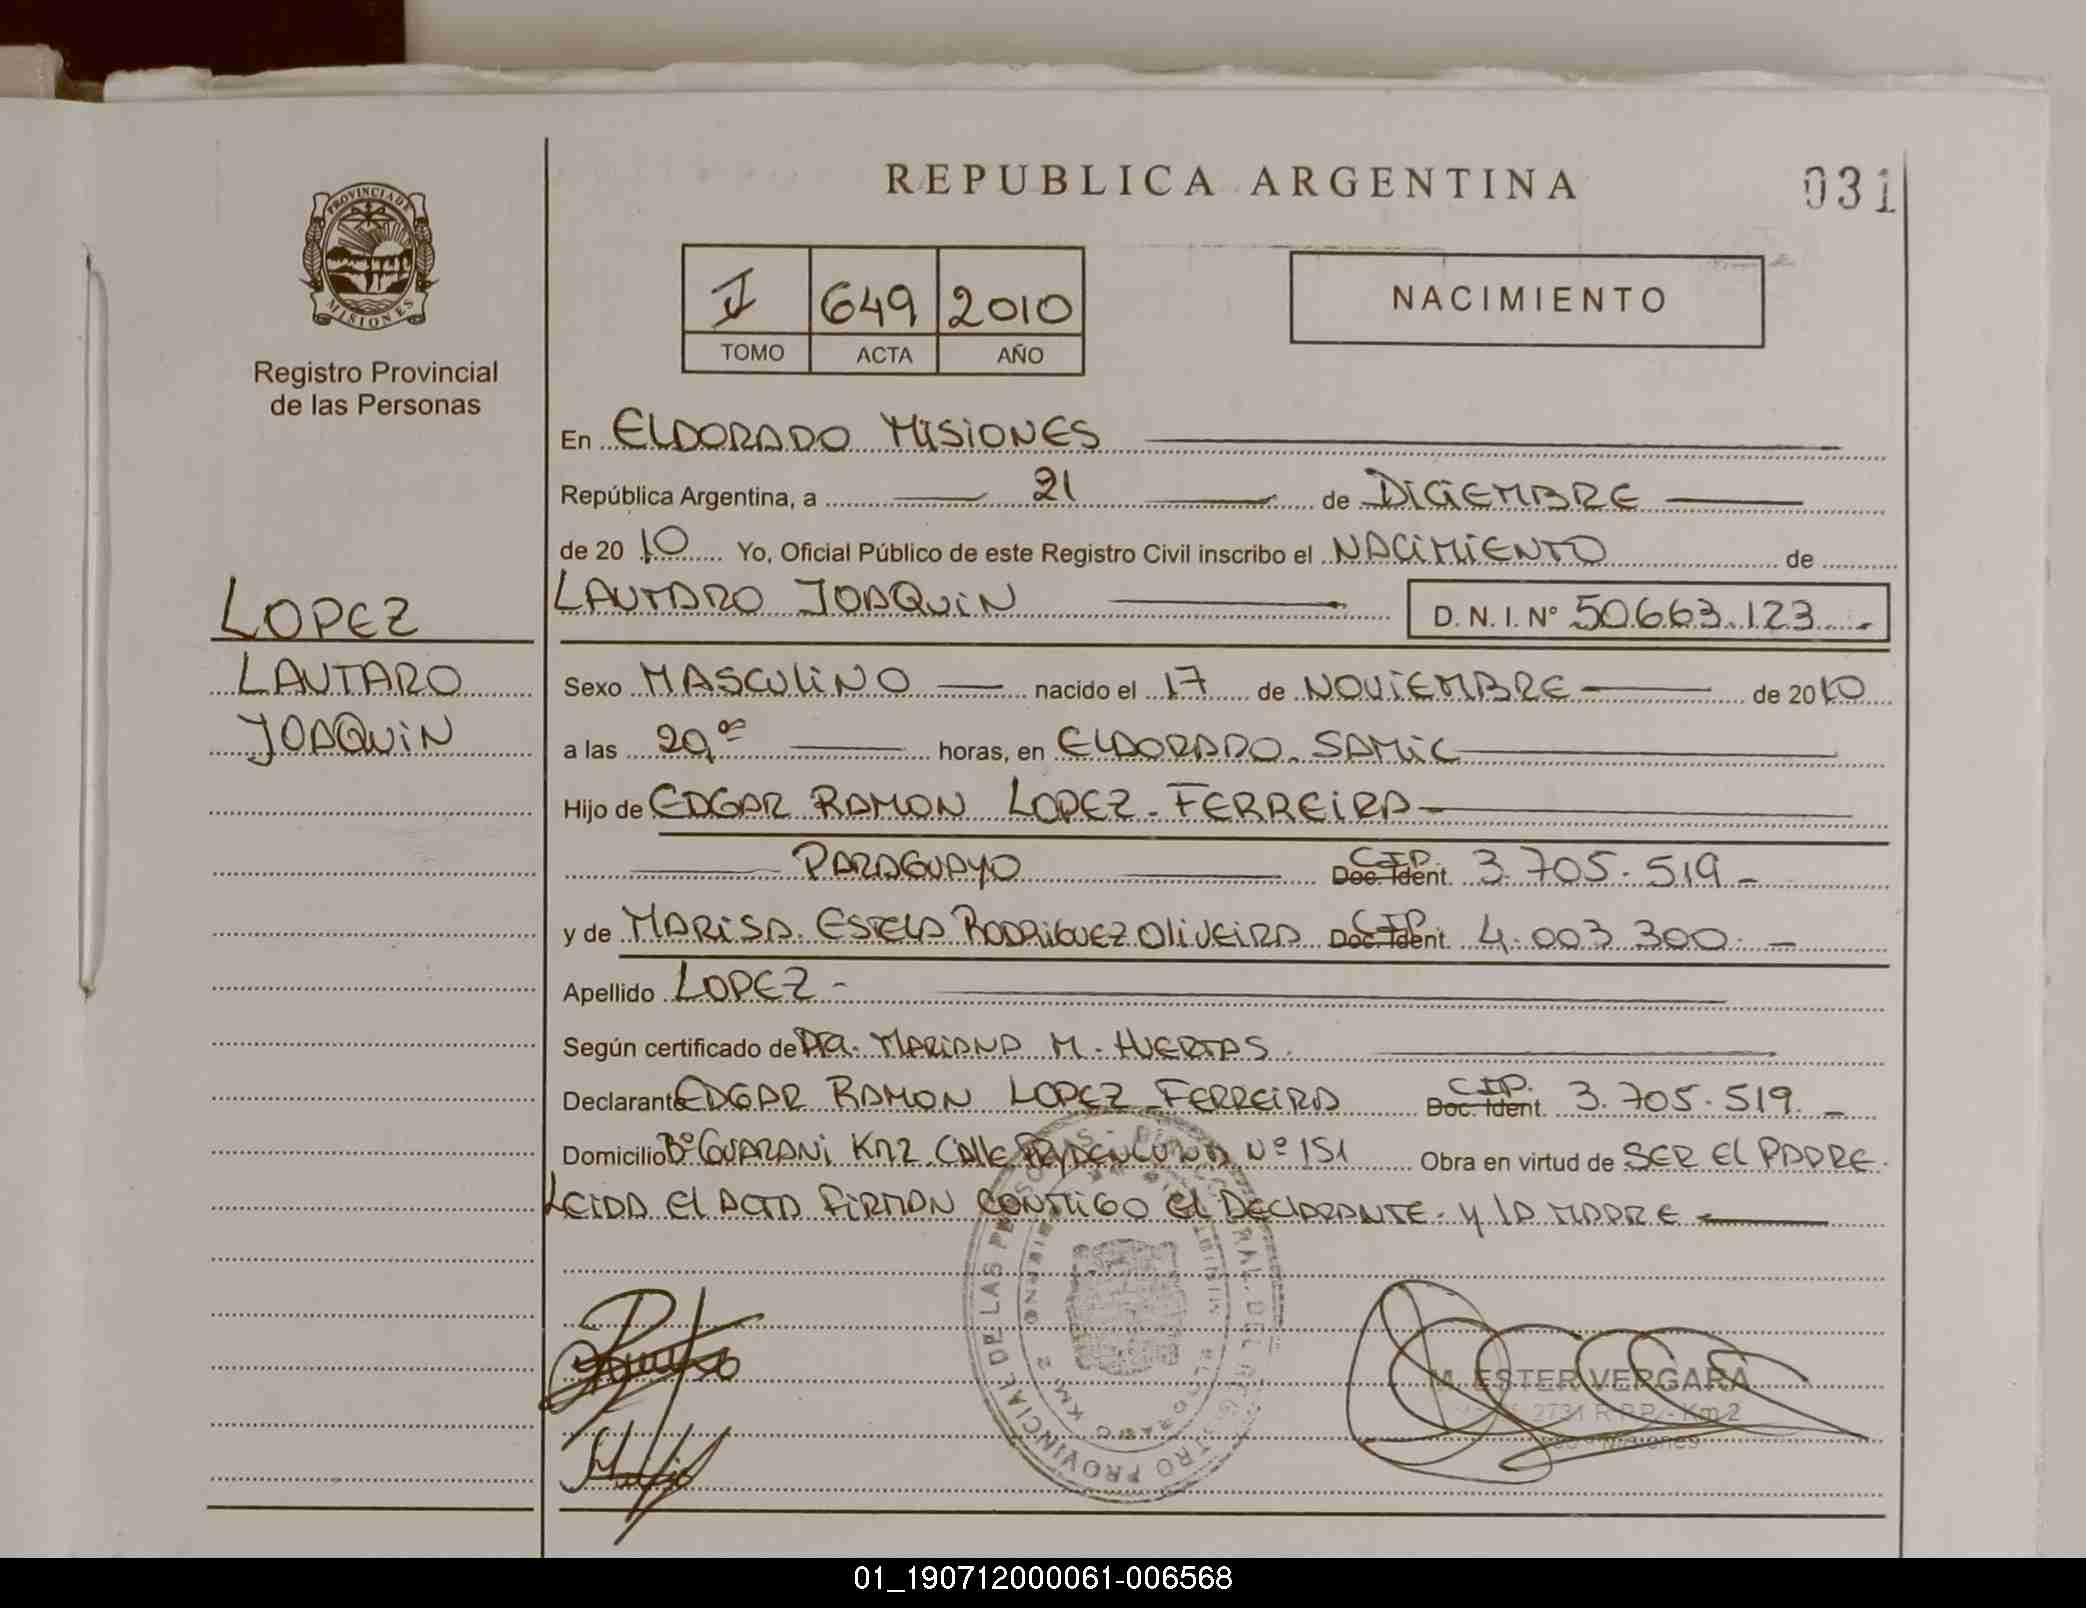 REPUBLICA ARGENTINA
031
PROVINCIA DE
MISIONES
Registro Provincial
de las Personas
I 649 2010
TOMO ACTA AÑO
NACIMIENTO
En ELDORADO MISIONES
República Argentina, a 21 de DICIEMBRE
de 2010 Yo, Oficial Público de este Registro Civil inscribo el NACIMIENTO de
LAUTARO JOAQUIN D. N. I. Nº 50.663.123.-
LOPEZ
LAUTARO
JOAQUIN
Sexo MASCULINO nacido el 17 de NOVIEMBRE de 2010
a las 20,00 horas, en ELDORADO. SAMIC
Hijo de EDGAR RAMON LOPEZ - FERREIRA
PARAGUAYO Doc. Ident. C.I.P. 3.705.519-
y de MARISA ESTELA RODRIGUEZ OLIVEIRA Doc. Ident. C.I.P. 4.003.300.-
Apellido LOPEZ-
Según certificado de DRA. MARIANA M. HUERTAS.
Declarante EDGAR RAMON LOPEZ FERREIRA Doc. Ident. C.I.P. 3.705.519.-
Domicilio Bº GUARANI KM2 CALLE Nº 151 Obra en virtud de SER EL PADRE.
LEIDA EL ACTA FIRMAN CONMIGO EL DECLARANTE Y LA MADRE
REGISTRO PROVINCIAL DE LAS PERSONAS
ELDORADO KM. 2
M. ESTER VERGARA
2731 R.P.P. - Km 2
Misiones
01_190712000061-006568